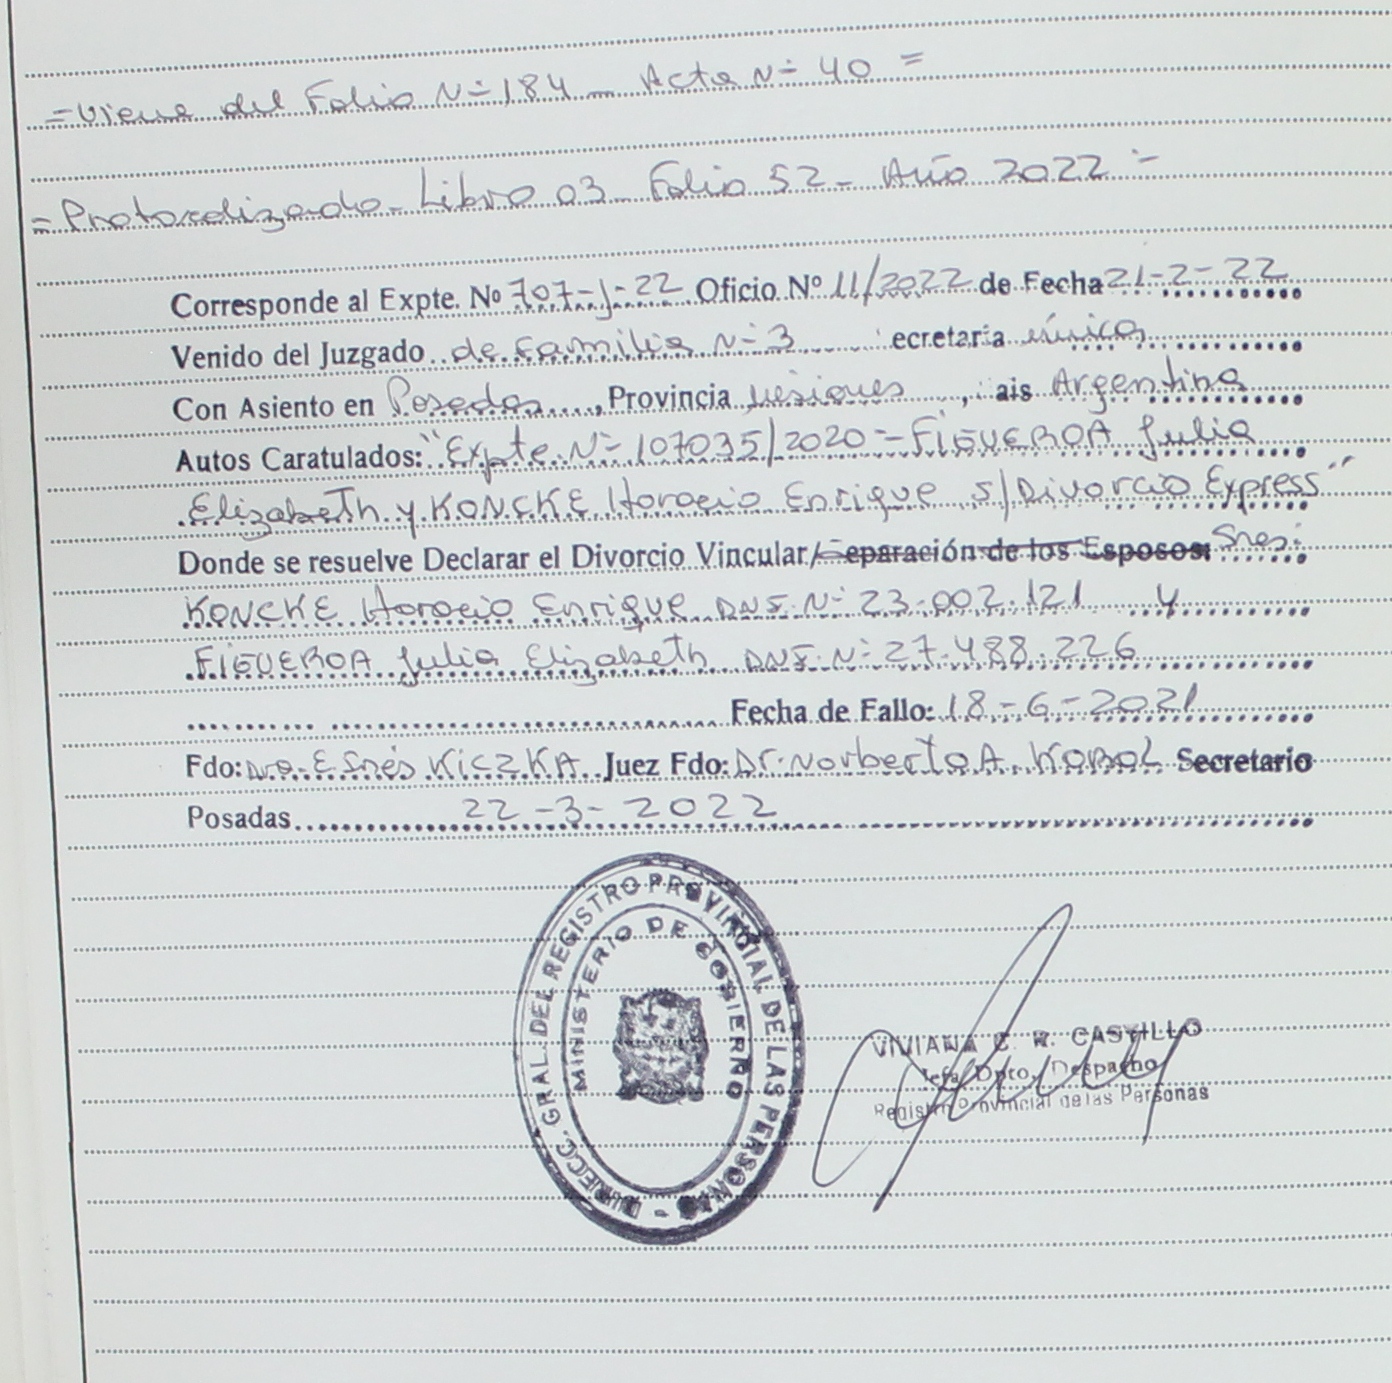 =Viene del Folio Nº 184 - Acta Nº 40 =
=Protocolizado - Libro 03 - Folio 52 - Año 2022 =
Corresponde al Expte. Nº 707-J-22 Oficio Nº 11/2022 de Fecha 21-2-22
Venido del Juzgado de Familia Nº 3 ecretaria única
Con Asiento en Posadas, Provincia Misiones, ais Argentina
Autos Caratulados: "Expte Nº 107035/2020 - FIGUEROA Julia
Elizabeth y KONCKE Horacio Enrique s/Divorcio Express"
Donde se resuelve Declarar el Divorcio Vincular/Separación de los Esposos: Sres.
KONCKE Horacio Enrique DNI Nº 23.002.121 y
FIGUEROA Julia Elizabeth DNI Nº 27.488.226
Fecha de Fallo: 18-6-2021
Fdo: Dra. E Inés KICZKA Juez Fdo: Dr. Norberto A. KOBOL Secretario
Posadas 22-3-2022
DIRECC. GRAL. DEL REGISTRO PROVINCIAL DE LAS PERSONAS -
MINISTERIO DE GOBIERNO
VIVIANA C. R. CASTILLO
Jefa Dpto. Despacho
Registro Provincial de las Personas